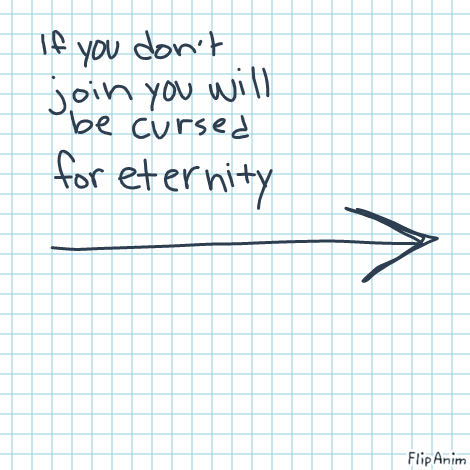 If you don't
join you will
be cursed
for eternity
FlipAnim